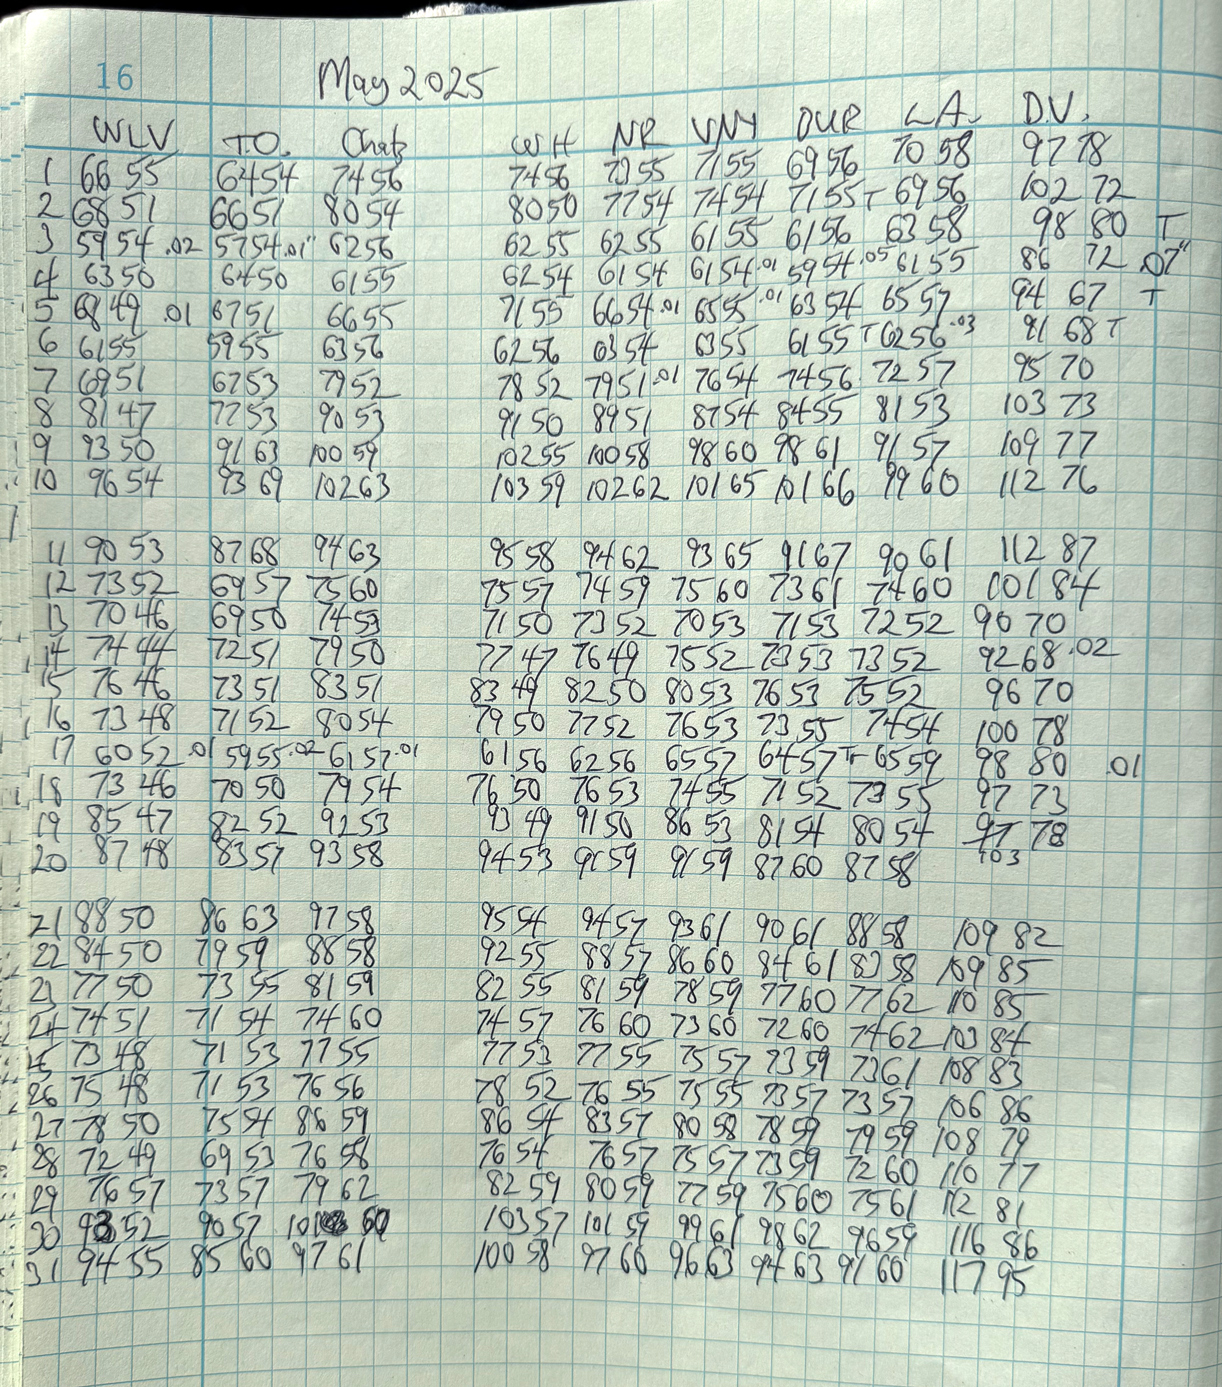 16 May 2025
WLV T.O. Chats WH NR VNY BUR L.A. D.V.
1 66 55 64 54 74 56 74 56 73 55 71 55 69 56 70 58 97 78
2 68 51 66 51 80 54 80 50 77 54 74 54 71 55 T 69 56 102 72
3 59 54 .02 57 54 .01" 62 56 62 55 62 55 61 55 61 56 63 58 98 80 T
4 63 50 64 50 61 55 62 54 61 54 61 54 .01 59 54 .05 61 55 86 72 .07"
5 68 49 .01 67 51 66 55 71 55 66 54 .01 65 55 .01 63 54 65 57 94 67 T
6 61 55 59 55 63 56 62 56 63 54 63 55 61 55 T 62 56 .03 91 68 T
7 69 51 67 53 79 52 78 52 79 51 .01 76 54 74 56 72 57 95 70
8 81 47 77 53 90 53 91 50 89 51 87 54 84 55 81 53 103 73
9 93 50 91 63 100 59 102 55 100 58 98 60 98 61 91 57 109 77
10 96 54 93 69 102 63 103 59 102 62 101 65 101 66 99 60 112 76
11 90 53 87 68 94 63 95 58 94 62 93 65 91 67 90 61 112 87
12 73 52 69 57 75 60 75 57 74 59 75 60 73 61 74 60 101 84
13 70 46 69 50 74 53 71 50 73 52 70 53 71 53 72 52 90 70
14 74 44 72 51 79 50 77 47 76 49 75 52 73 53 73 52 92 68 .02
15 76 46 73 51 83 51 83 49 82 50 80 53 76 53 75 52 96 70
16 73 48 71 52 80 54 79 50 77 52 76 53 73 55 74 54 100 78
17 60 52 .01 59 55 .02 61 57 .01 61 56 62 56 65 57 64 57 T 65 59 98 80 .01
18 73 46 70 50 79 54 76 50 76 53 74 55 71 52 73 55 97 73
19 85 47 82 52 92 53 93 49 91 50 86 53 81 54 80 54 97 78
20 87 48 83 57 93 58 94 53 91 59 91 59 87 60 87 58 103
21 88 50 86 63 97 58 95 54 94 57 93 61 90 61 88 58 109 82
22 84 50 79 59 88 58 92 55 88 57 86 60 84 61 83 58 109 85
23 77 50 73 55 81 59 82 55 81 59 78 59 77 60 77 62 110 85
24 74 51 71 54 74 60 74 57 76 60 73 60 72 60 74 62 103 84
25 73 48 71 53 77 55 77 53 77 55 75 57 73 59 73 61 108 83
26 75 48 71 53 76 56 78 52 76 55 75 55 73 57 73 57 106 86
27 78 50 75 54 86 59 86 54 83 57 80 58 78 59 79 59 108 79
28 72 49 69 53 76 58 76 54 76 57 75 57 73 59 72 60 110 77
29 76 57 73 57 79 62 82 59 80 59 77 59 75 60 75 61 112 81
30 93 52 90 57 101 60 103 57 101 59 99 61 98 62 96 59 116 86
31 94 55 85 60 97 61 100 58 97 60 96 63 94 63 91 60 117 95